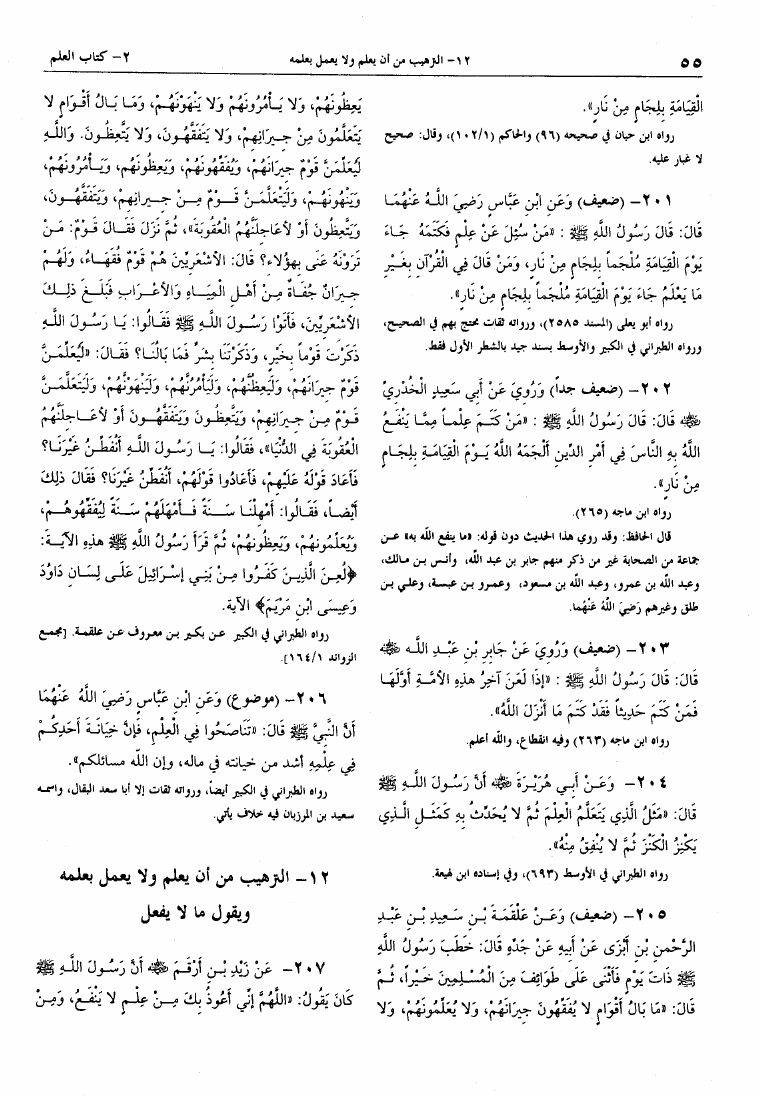 ٥٥
١٢- الترهيب من أن يعلم ولا يعمل بعلمه
٢- كتاب العلم
الْقِيَامَةِ بِلِجَامٍ مِنْ نَارٍ».
رواه ابن حبان في صحيحه (٩٦) والحاكم (١٠٢/١)، وقال: صحيح
لا غبار عليه.
٢٠١- (ضعيف) وَعَنِ ابْنِ عَبَّاسٍ رَضِيَ اللَّهُ عَنْهُمَا
قَالَ: قَالَ رَسُولُ اللَّهِ ﷺ : «مَنْ سُئِلَ عَنْ عِلْمٍ فَكَتَمَهُ جَاءَ
يَوْمَ الْقِيَامَةِ مُلْجَماً بِلِجَامٍ مِنْ نَارٍ، وَمَنْ قَالَ فِي الْقُرْآنِ بِغَيْرِ
مَا يَعْلَمُ جَاءَ يَوْمَ الْقِيَامَةِ مُلْجَماً بِلِجَامٍ مِنْ نَارٍ».
رواه أبو يعلى (المسند ٢٥٨٥)، ورواته ثقات محتج بهم في الصحيح،
ورواه الطبراني في الكبير والأوسط بسند جيد بالشطر الأول فقط.
٢٠٢- (ضعيف جداً) وَرُوِيَ عَنْ أَبِي سَعِيدٍ الْخُدْرِيِّ
ﷺ قَالَ: قَالَ رَسُولُ اللَّهِ ﷺ : «مَنْ كَتَمَ عِلْماً مِمَّا يَنْفَعُ
اللَّهُ بِهِ النَّاسَ فِي أَمْرِ الدِّينِ أَلْجَمَهُ اللَّهُ يَوْمَ الْقِيَامَةِ بِلِجَامٍ
مِنْ نَارٍ».
رواه ابن ماجه (٢٦٥).
قال الحافظ: وقد روي هذا الحديث دون قوله: «ما ينفع الله به» عن
جماعة من الصحابة غير من ذكر منهم جابر بن عبد الله، وأنس بن مالك،
وعبد الله بن عمرو، وعبد الله بن مسعود، وعمرو بن عبسة، وعلي بن
طلق وغيرهم رَضِيَ اللَّهُ عَنْهُما.
٢٠٣- (ضعيف) وَرُوِيَ عَنْ جَابِرِ بْنِ عَبْدِ اللَّهِ ﷺ
قَالَ: قَالَ رَسُولُ اللَّهِ ﷺ : «إِذَا لَعَنَ آخِرُ هذِهِ الأُمَّةِ أَوَّلَهَا
فَمَنْ كَتَمَ حَدِيثاً فَقَدْ كَتَمَ مَا أَنْزَلَ اللَّهُ».
رواه ابن ماجه (٢٦٣) وفيه انقطاع، والله أعلم.
٢٠٤- وَعَنْ أَبِي هُرَيْرَةَ ﷺ أَنَّ رَسُولَ اللَّهِ ﷺ
قَالَ: «مَثَلُ الَّذِي يَتَعَلَّمُ الْعِلْمَ ثُمَّ لَا يُحَدِّثُ بِهِ كَمَثَلِ الَّذِي
يَكْنِزُ الْكَنْزَ ثُمَّ لَا يُنْفِقُ مِنْهُ».
رواه الطبراني في الأوسط (٦٩٣)، وفي إسناده ابن لهيعة.
٢٠٥- (ضعيف) وَعَنْ عَلْقَمَةَ بْنِ سَعِيدِ بْنِ عَبْدِ
الرَّحْمنِ بْنِ أَبْزَى عَنْ أَبِيهِ عَنْ جَدِّهِ قَالَ: خَطَبَ رَسُولُ اللَّهِ
ﷺ ذَاتَ يَوْمٍ فَأَثْنَى عَلَى طَوَائِفَ مِنَ الْمُسْلِمِينَ خَيْراً، ثُمَّ
قَالَ: «مَا بَالُ أَقْوَامٍ لَا يُفَقِّهُونَ جِيرَانَهُمْ، وَلَا يُعَلِّمُونَهُمْ، وَلَا
يَعِظُونَهُمْ، وَلَا يَأْمُرُونَهُمْ وَلَا يَنْهَوْنَهُمْ، وَمَا بَالُ أَقْوَامٍ لَا
يَتَعَلَّمُونَ مِنْ جِيرَانِهِمْ، وَلَا يَتَفَقَّهُونَ، وَلَا يَتَّعِظُونَ. وَاللَّهِ
لَيُعَلِّمَنَّ قَوْمٌ جِيرَانَهُمْ، وَيُفَقِّهُونَهُمْ، وَيَعِظُونَهُمْ، وَيَأْمُرُونَهُمْ،
وَيَنْهَوْنَهُمْ، وَلَيَتَعَلَّمَنَّ قَوْمٌ مِنْ جِيرَانِهِمْ، وَيَتَفَقَّهُونَ،
وَيَتَّعِظُونَ أَوْ لأُعَاجِلَنَّهُمُ الْعُقُوبَةَ»، ثُمَّ نَزَلَ فَقَالَ قَوْمٌ: مَنْ
تَرَوْنَهُ عَنَى بِهؤُلَاءِ؟ قَالَ: الأَشْعَرِيِّينَ هُمْ قَوْمٌ فُقَهَاءُ، وَلَهُمْ
جِيرَانٌ جُفَاةٌ مِنْ أَهْلِ الْمِيَاهِ وَالأَعْرَابِ فَبَلَغَ ذلِكَ
الأَشْعَرِيِّينَ، فَأَتَوْا رَسُولَ اللَّهِ ﷺ فَقَالُوا: يَا رَسُولَ اللَّهِ
ذَكَرْتَ قَوْماً بِخَيْرٍ، وَذَكَرْتَنَا بِشَرٍّ فَمَا بَالُنَا؟ فَقَالَ: «لَيُعَلِّمَنَّ
قَوْمٌ جِيرَانَهُمْ، وَلَيَعِظُنَّهُمْ، وَلَيَأْمُرُنَّهُمْ، وَلَيَنْهَوُنَّهُمْ، وَلَيَتَعَلَّمَنَّ
قَوْمٌ مِنْ جِيرَانِهِمْ، وَيَتَّعِظُونَ وَيَتَفَقَّهُونَ أَوْ لأُعَاجِلَنَّهُمُ
الْعُقُوبَةَ فِي الدُّنْيَا»، فَقَالُوا: يَا رَسُولَ اللَّهِ أَنُفَطِّنُ غَيْرَنَا؟
فَأَعَادَ قَوْلَهُ عَلَيْهِمْ، فَأَعَادُوا قَوْلَهُمْ، أَنُفَطِّنُ غَيْرَنَا؟ فَقَالَ ذلِكَ
أَيْضاً، فَقَالُوا: أَمْهِلْنَا سَنَةً فَأَمْهَلَهُمْ سَنَةً لِيُفَقِّهُوهُمْ،
وَيُعَلِّمُونَهُمْ، وَيَعِظُونَهُمْ، ثُمَّ قَرَأَ رَسُولُ اللَّهِ ﷺ هذِهِ الآيَةَ:
﴿لُعِنَ الَّذِينَ كَفَرُوا مِنْ بَنِي إِسْرَائِيلَ عَلَى لِسَانِ دَاوُدَ
وَعِيسَى ابْنِ مَرْيَمَ﴾ الآية.
رواه الطبراني في الكبير عن بكير بن معروف عن علقمة. [مجمع
الزوائد ١٦٤/١].
٢٠٦- (موضوع) وَعَنِ ابْنِ عَبَّاسٍ رَضِيَ اللَّهُ عَنْهُمَا
أَنَّ النَّبِيَّ ﷺ قَالَ: «تَنَاصَحُوا فِي الْعِلْمِ، فَإِنَّ خِيَانَةَ أَحَدِكُمْ
فِي عِلْمِهِ أشد من خيانته في ماله، وإن الله مسائلكم».
رواه الطبراني في الكبير أيضاً، ورواته ثقات إلا أبا سعد البقال، واسمه
سعيد بن المرزبان فيه خلاف يأتي.
١٢- الترهيب من أن يعلم ولا يعمل بعلمه
ويقول ما لا يفعل
٢٠٧- عَنْ زَيْدِ بْنِ أَرْقَمَ ﷺ أَنَّ رَسُولَ اللَّهِ ﷺ
كَانَ يَقُولُ: «اللَّهُمَّ إِنِّي أَعُوذُ بِكَ مِنْ عِلْمٍ لَا يَنْفَعُ، وَمِنْ